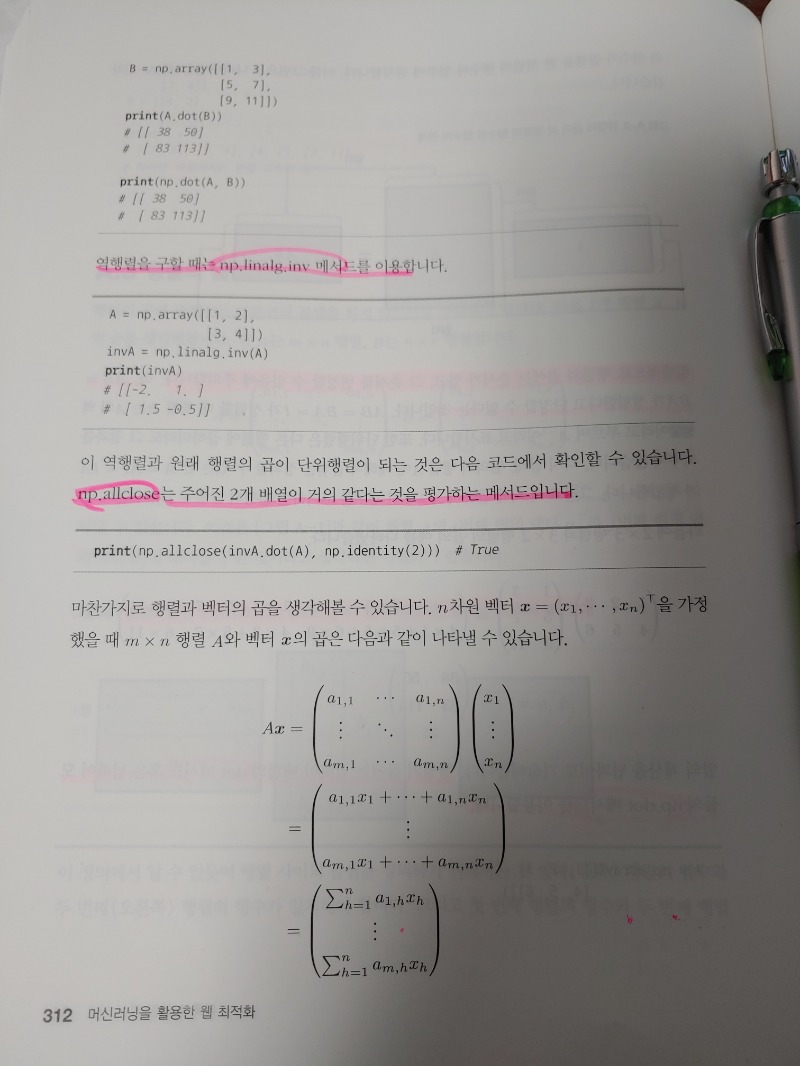 B = np.array([[1, 3],
[5, 7],
[9, 11]])
print(A.dot(B))
# [[ 38 50]
# [ 83 113]]
print(np.dot(A, B))
# [[ 38 50]
# [ 83 113]]
역행렬을 구할 때는 np.linalg.inv 메서드를 이용합니다.
A = np.array([[1, 2],
[3, 4]])
invA = np.linalg.inv(A)
print(invA)
# [[-2. 1. ]
# [ 1.5 -0.5]]
이 역행렬과 원래 행렬의 곱이 단위행렬이 되는 것은 다음 코드에서 확인할 수 있습니다.
np.allclose는 주어진 2개 배열이 거의 같다는 것을 평가하는 메서드입니다.
print(np.allclose(invA.dot(A), np.identity(2))) # True
마찬가지로 행렬과 벡터의 곱을 생각해볼 수 있습니다. n차원 벡터 x = (x₁, ⋯ , xₙ)⊤을 가정
했을 때 m × n 행렬 A와 벡터 x의 곱은 다음과 같이 나타낼 수 있습니다.
a₁,₁ ⋯ a₁,ₙ x₁
Ax = ⋮ ⋱ ⋮ ⋮
aₘ,₁ ⋯ aₘ,ₙ xₙ
a₁,₁x₁ + ⋯ + a₁,ₙxₙ
= ⋮
aₘ,₁x₁ + ⋯ + aₘ,ₙxₙ
∑ⁿₕ₌₁ a₁,ₕxₕ
= ⋮
∑ⁿₕ₌₁ aₘ,ₕxₕ
312 머신러닝을 활용한 웹 최적화